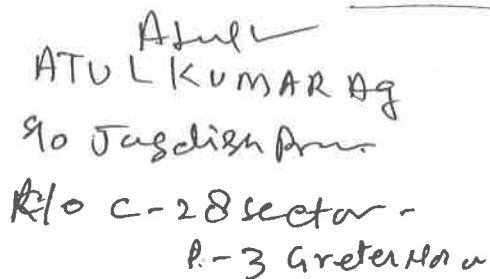 Atul
ATUL KUMAR Ag
S/o Jagdish
R/o C-28 sector-
P.-3 Greter